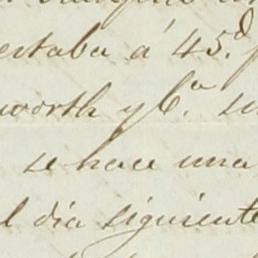 estaba á 45.d
worth y C.a su
se hace una
l dia siguiente